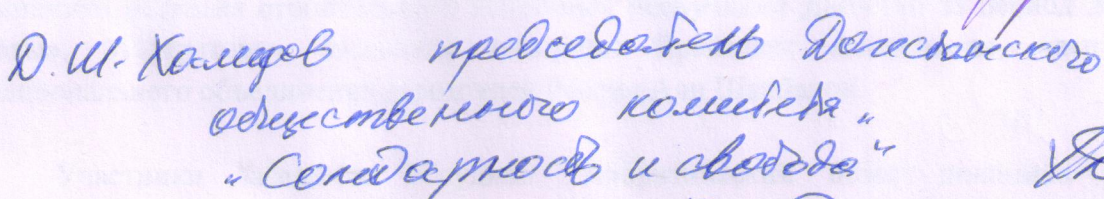 Д.Ш. Халидов председатель Дагестанского
общественного комитета „
„Солидарность и свобода"